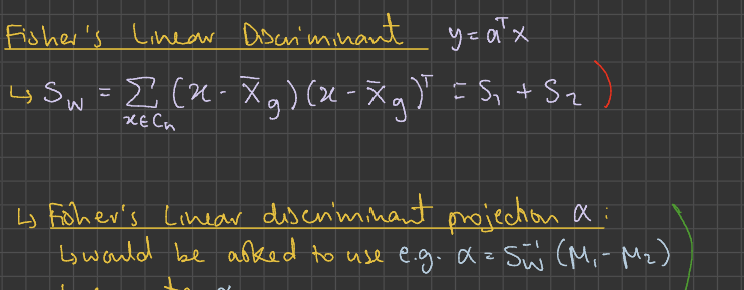 Fisher's Linear Discriminant y = aᵀx
↳ S_W = Σ_{x∈Cₙ} (x - x̄_g)(x - x̄_g)ᵀ = S₁ + S₂ )
↳ Fisher's Linear discriminant projection α :
↳ would be asked to use e.g. α = S_W⁻¹ (M₁ - M₂)